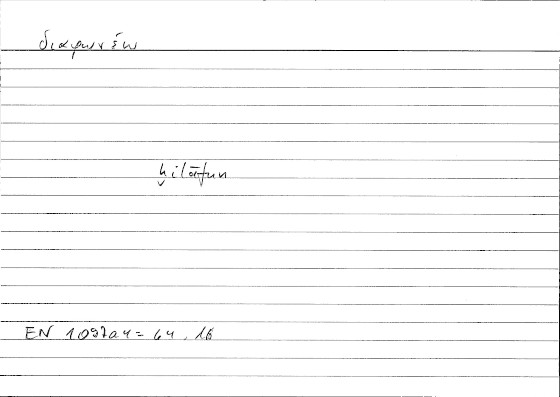 διαφωνέω
ḫilāfun
EN 1097a4 = 64, 16